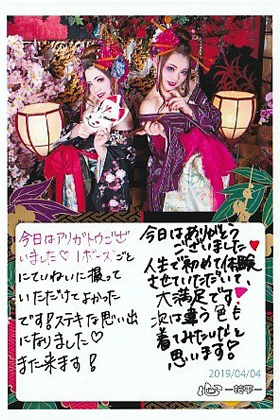 今日はアリガトウござ
いました♡ 1ポーズごと
にていねいに撮って
いただけてよかった
です!ステキな思い出
になりました♡
また来ます!
今日はありがとう
ございました♥
人生で初めて体験
させていただいて、
大満足です♥
次は違う色も
着てみたいなと
思います!
2019/04/04